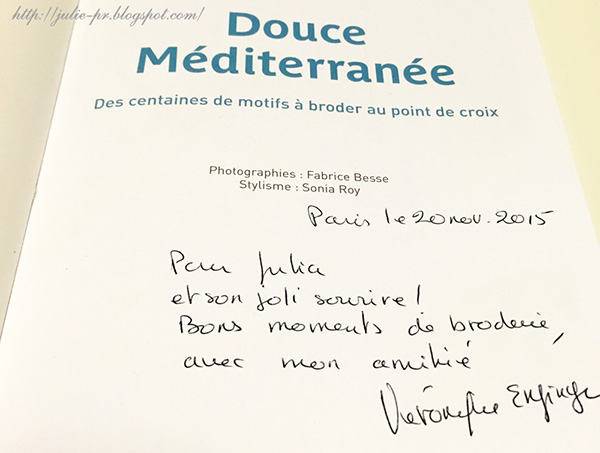 http://julie-pr.blogspot.com/
Douce
Méditerranée
Des centaines de motifs à broder au point de croix
Photographies : Fabrice Besse
Stylisme : Sonia Roy
Paris le 20 nov. 2015
Pour Julia
et son joli sourire !
Bons moments de broderie,
avec mon amitié
Véronique Enginger